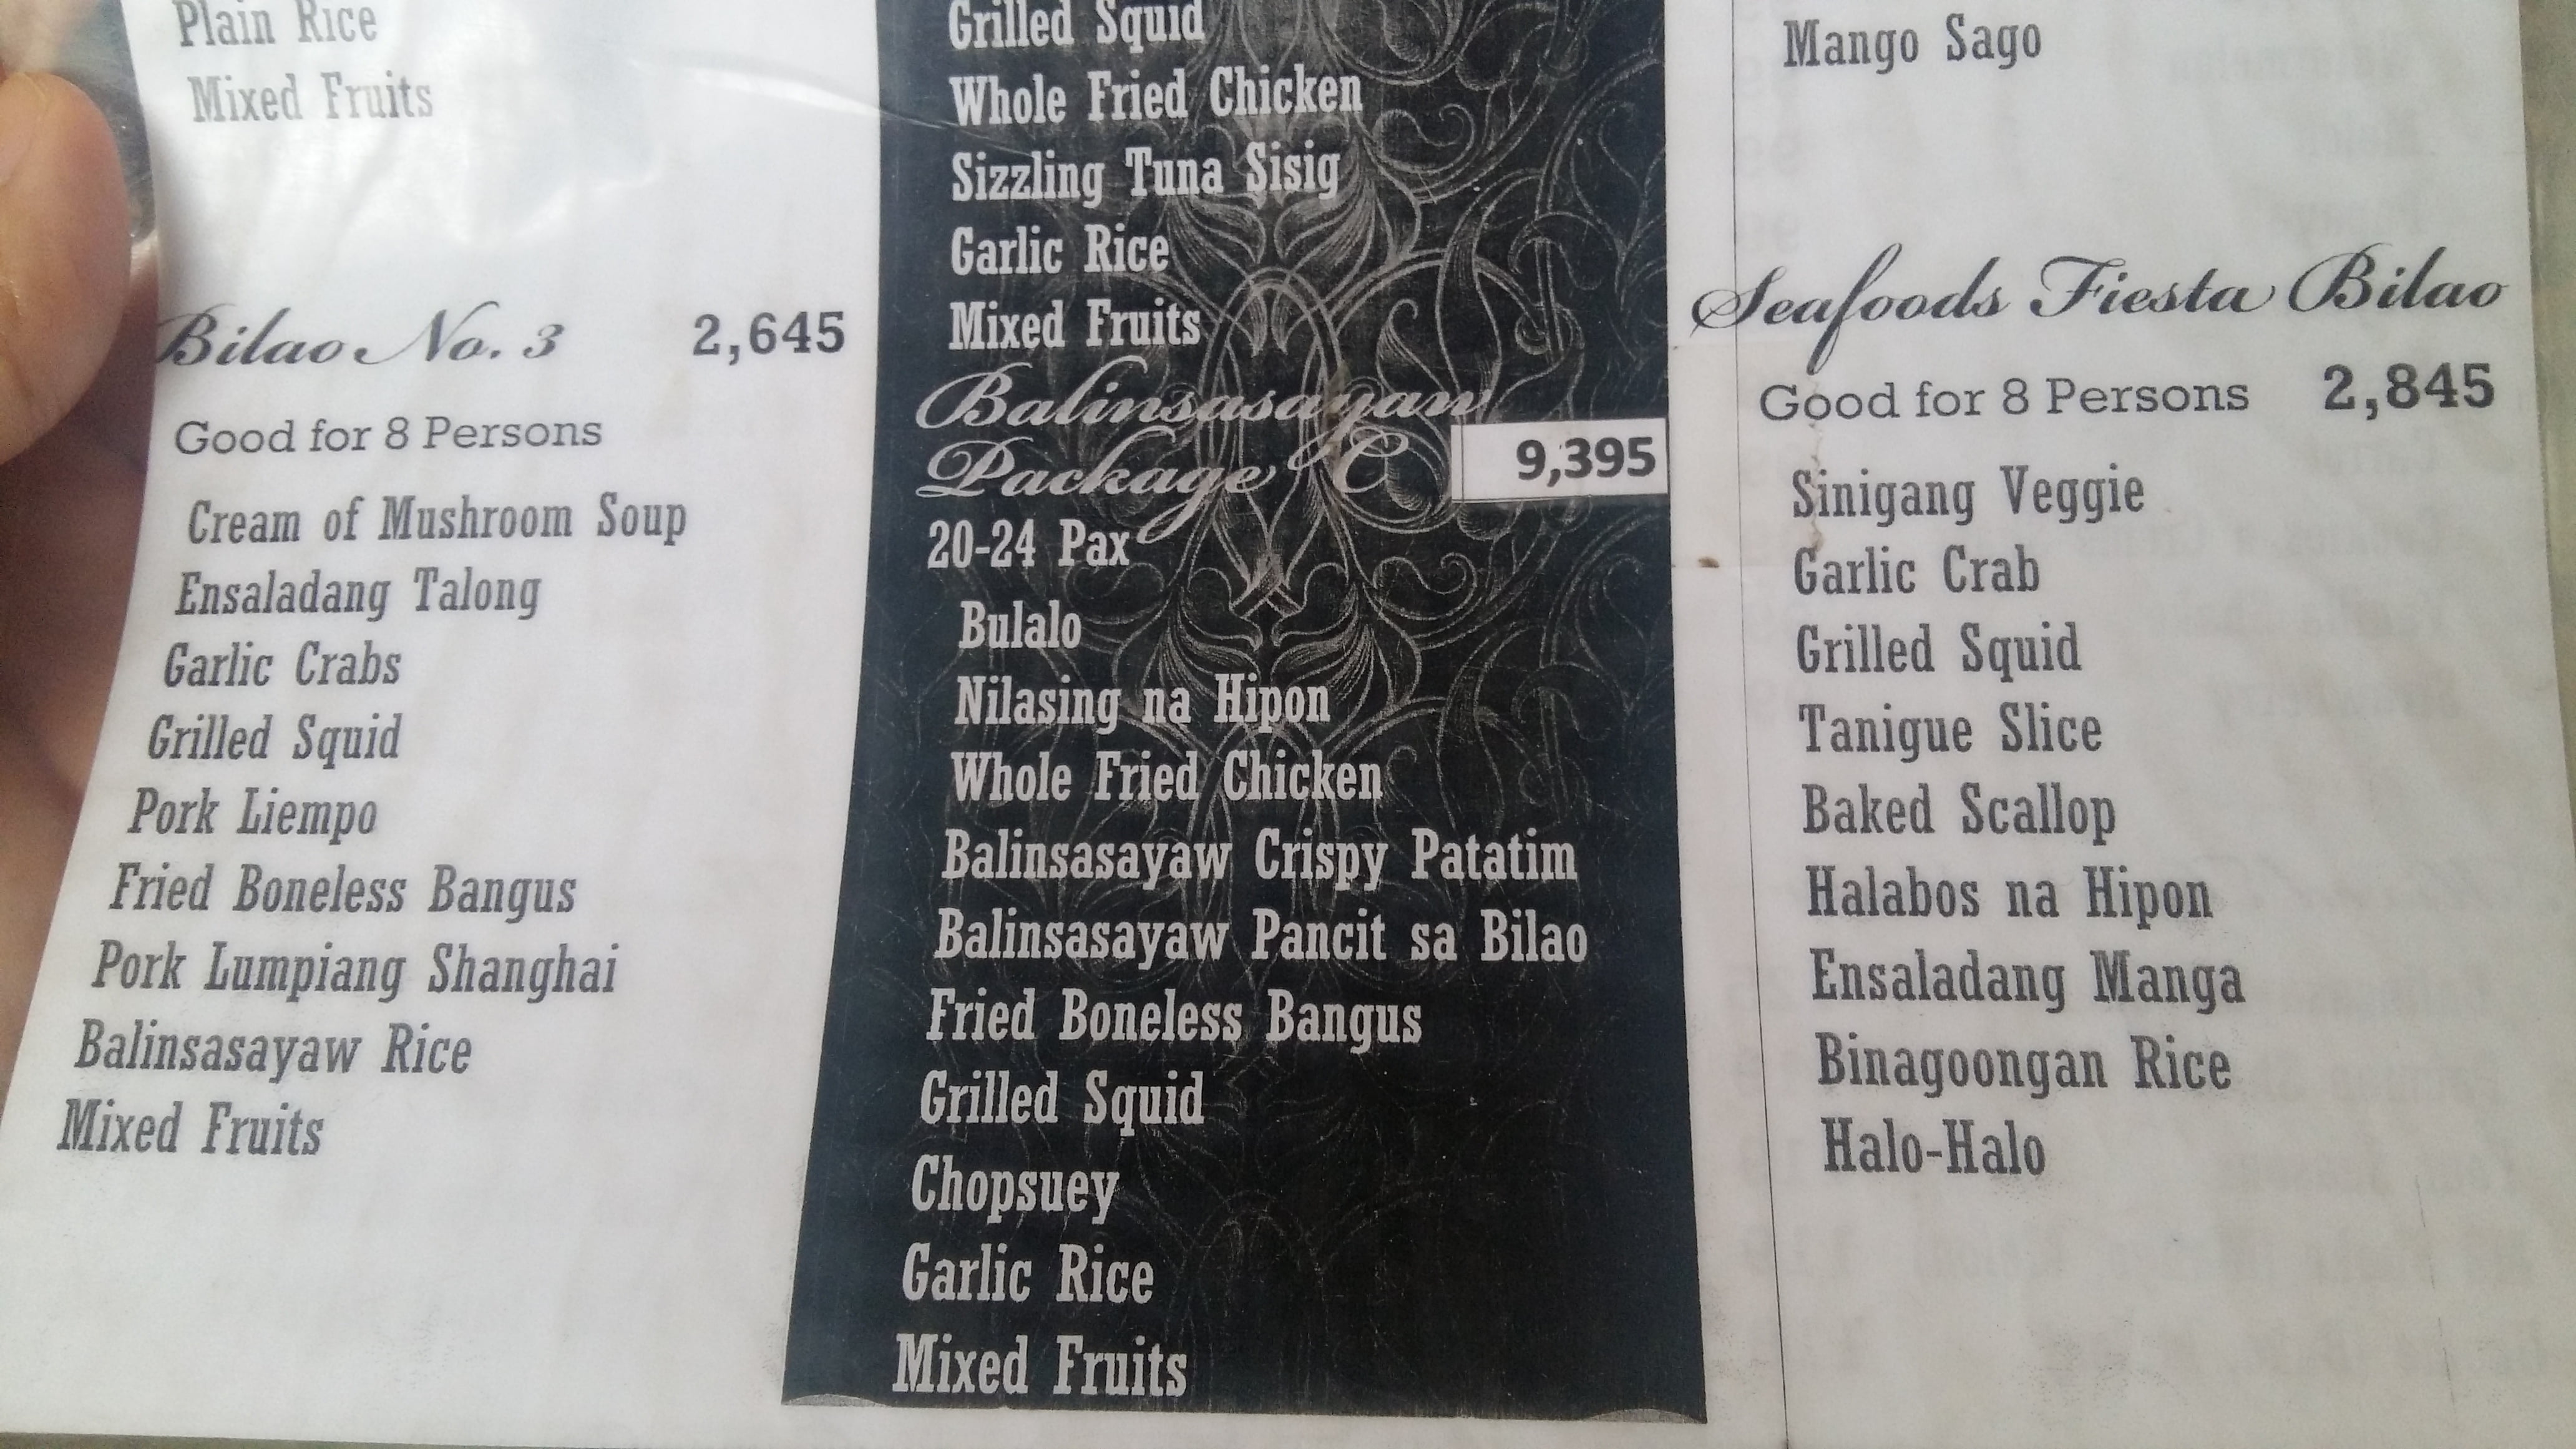 Plain Rice
Mixed Fruits
Bilao No. 3 2,645
Good for 8 Persons
Cream of Mushroom Soup
Ensaladang Talong
Garlic Crabs
Grilled Squid
Pork Liempo
Fried Boneless Bangus
Pork Lumpiang Shanghai
Balinsasayaw Rice
Mixed Fruits
Grilled Squid
Whole Fried Chicken
Sizzling Tuna Sisig
Garlic Rice
Mixed Fruits
Balinsasayaw
Package C 9,395
20-24 Pax
Bulalo
Nilasing na Hipon
Whole Fried Chicken
Balinsasayaw Crispy Patatim
Balinsasayaw Pancit sa Bilao
Fried Boneless Bangus
Grilled Squid
Chopsuey
Garlic Rice
Mixed Fruits
Mango Sago
Seafoods Fiesta Bilao
Good for 8 Persons 2,845
Sinigang Veggie
Garlic Crab
Grilled Squid
Tanigue Slice
Baked Scallop
Halabos na Hipon
Ensaladang Manga
Binagoongan Rice
Halo-Halo